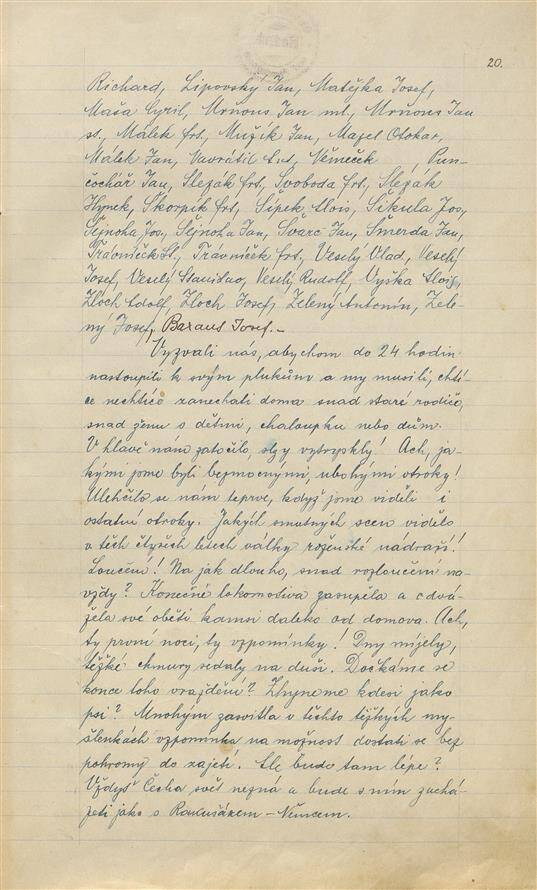 20.
Richard, Lipovský Jan, Matějka Josef,
Maša Cyril, Mrňous Jan ml., Mrňous Jan
st., Málek frt., Mužík Jan, Mazel Otokar,
Málek Jan, Navrátil Ant., Němeček , Pun-
čochář Jan, Slezák frt., Svoboda frt., Slezák
Hynek, Škorpík frt., Šípek Alois, Šikula Jos.,
Šejnoha Jos., Šejnoha Jan, Švarc Jan, Šmerda Jan,
Trávníček St., Trávníček frt., Veselý Vlad., Veselý
Josef, Veselý Stanislav, Veselý Rudolf, Vyška Alois,
Zloch Adolf, Zloch Josef, Zelený Antonín, Zele-
ný Josef, Baxant Josef. —
Vyzvali nás, abychom do 24 hodin
nastoupili k svým plukům a my musili, chtí-
ce nechtíce zanechati doma snad staré rodiče,
snad ženu s dětmi, chaloupku nebo dům.
V hlavě nám zatočilo, slzy vytryskly! Ach, ja-
kými jsme byli bezmocnými, ubohými otroky!
Ulehčilo se nám teprve, když jsme viděli i
ostatní otroky. Jakých smutných scen vidělo
v těch čtyřech letech války roženské nádraží!
Loučení! Na jak dlouho, snad rozloučení na-
vždy? Konečně lokomotiva zasupěla a odvá-
žela své oběti kamsi daleko od domova. Ach,
ty první noci, ty vzpomínky! Dny míjely,
těžké chmury sedaly na duši. Dočkáme se
konce toho vraždění? Zhyneme kdesi jako
psi? Mnohým zasvitla v těchto těžkých my-
šlenkách vzpomínka na možnost dostati se bez
pohromy do zajetí. Ale bude tam lépe?
Vždyť Čecha svět nezná a bude s ním zachá-
zeti jako s Rakušákem – Němcem.